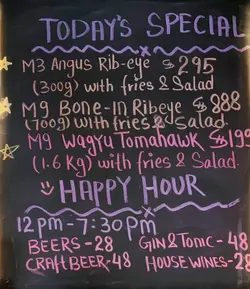 TODAY'S SPECIAL
M3 Angus Rib-eye $295
(300g) with fries & Salad
M9 Bone-in Ribeye $888
(700g) with fries & Salad.
M9 Wagyu Tomahawk
(1.6 Kg) with fries & Salad.
HAPPY HOUR
12pm-7:30pm
BEERS-28 GIN & Tonic-48
CRAFT BEER-48 HOUSE WINES-28